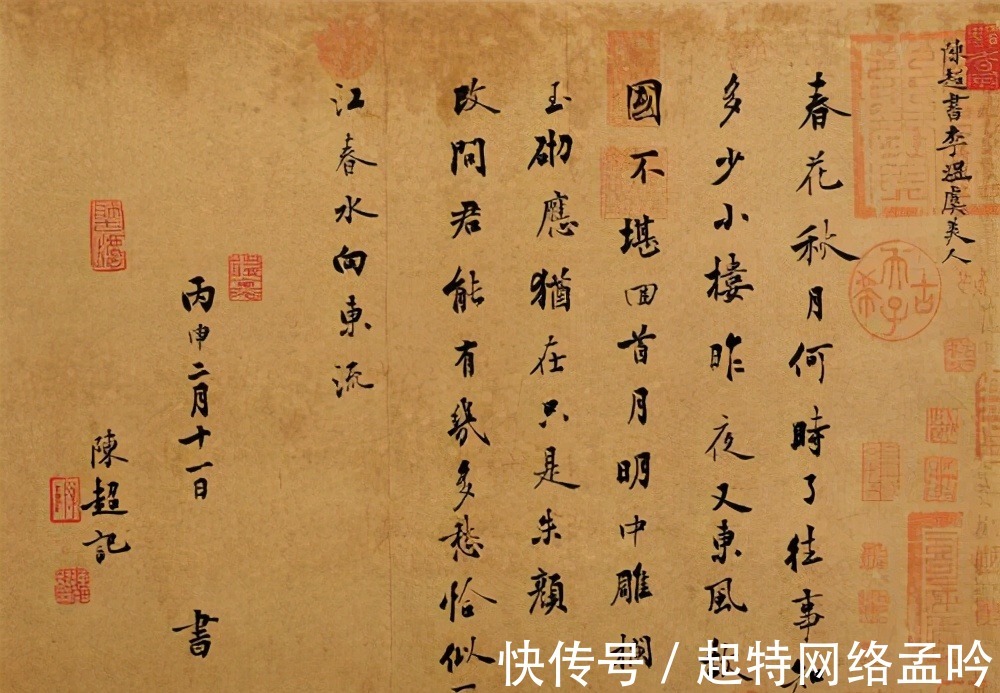 陳超書李煜虞美人
春花秋月何時了往事知
多少小樓昨夜又東風
國不堪回首月明中雕欄
玉砌應猶在只是朱顔
改問君能有幾多愁恰似一
江春水向東流
丙申二月十一日 書
陳超記
古希天子
快传号 / 起特网络孟吟